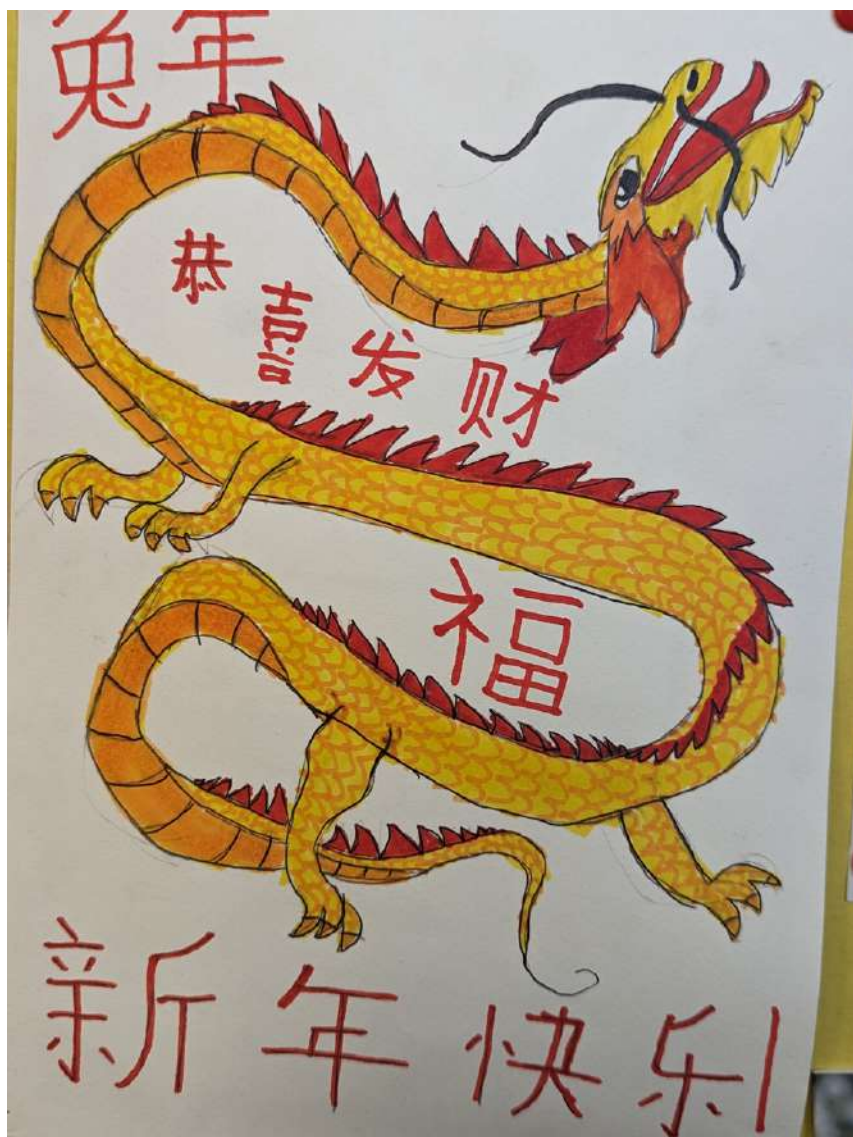 兔年
恭喜发财
福
新年快乐!